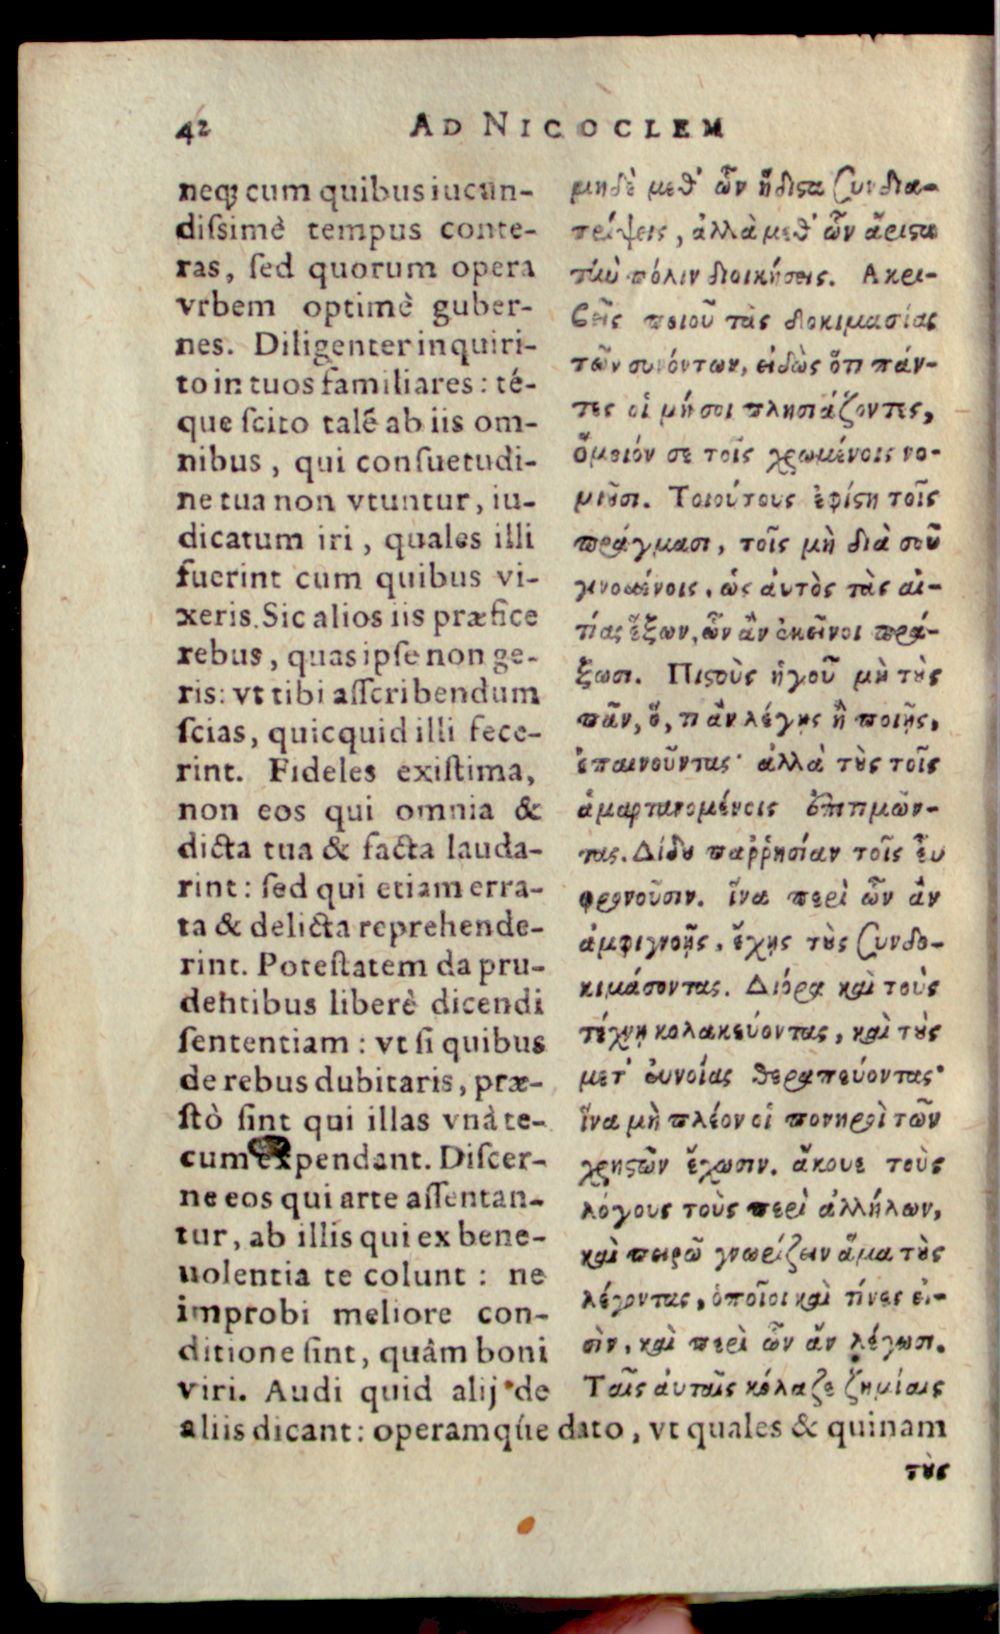 42 AD NICOCLEM
neq; cum quibus iucun-
diſsimè tempus conte-
ras, ſed quorum opera
vrbem optimè guber-
nes. Diligenter inquiri-
to in tuos familiares: té-
que ſcito talẽ ab iis om-
nibus, qui conſuetudi-
ne tua non vtuntur, iu-
dicatum iri, quales illi
fuerint cum quibus vi-
xeris. Sic alios iis præfice
rebus, quas ipſe non ge-
ris: vt tibi aſſcribendum
ſcias, quicquid illi fece-
rint. Fideles exiſtima,
non eos qui omnia &
dicta tua & facta lauda-
rint: ſed qui etiam erra-
ta & delicta reprehende-
rint. Poteſtatem da pru-
dentibus liberè dicendi
ſententiam: vt ſi quibus
de rebus dubitaris, præ-
ſtò ſint qui illas vnà te-
cum expendant. Diſcer-
ne eos qui arte aſſentan-
tur, ab illis qui ex bene-
uolentia te colunt: ne
improbi meliore con-
ditione ſint, quâm boni
viri. Audi quid alij de
aliis dicant: operamqúe dato, vt quales & quinam
μηδὲ μεθ' ὧν ἥδιϛα συνδια-
τρίψεις, ἀλλὰ μεθ' ὧν ἄριϛα
τὴν πόλιν διοικήσεις. Ακρι-
βεῖς ποιοῦ τὰς δοκιμασίας
τῶν συνόντων, εἰδὼς ὅτι πάν-
τες οἱ μή σοι πλησιάζοντες,
ὅμοιόν σε τοῖς χρωμένοις νο-
μιοῦσι. Τοιούτους ἐφίϛη τοῖς
πράγμασι, τοῖς μὴ διὰ σοῦ
γινομένοις, ὡς ἀυτὸς τὰς αἰ-
τίας ἕξων, ὧν ἂν ἐκεῖνοι πρά-
ξωσι. Πιϛοὺς ἡγοῦ μὴ τοὺς
πᾶν, ὅ, τι ἂν λέγῃς ἢ ποιῇς,
ἐπαινοῦντας· ἀλλὰ τοὺς τοῖς
ἁμαρτανομένοις ἐπιτιμῶν-
τας. Δίδου παῤῥησίαν τοῖς εὖ
φρονοῦσιν. ἵνα περὶ ὧν ἂν
ἀμφιγνοῇς, ἔχῃς τοὺς συνδο-
κιμάσοντας. Διόρα καὶ τοὺς
τέχνῃ κολακεύοντας, καὶ τοὺς
μετ' ἐυνοίας θεραπεύοντας·
ἵνα μὴ πλέον οἱ πονηροὶ τῶν
χρηϛῶν ἔχωσιν. ἄκουε τοὺς
λόγους τοὺς περὶ ἀλλήλων,
καὶ πειρῶ γνωρίζειν ἅμα τοὺς
λέγοντας, ὁποῖοι καὶ τίνες εἰ-
σὶν, καὶ περὶ ὧν ἂν λέγωσι.
Ταῖς ἀυταῖς κόλαζε ζημίαις
τοὺς